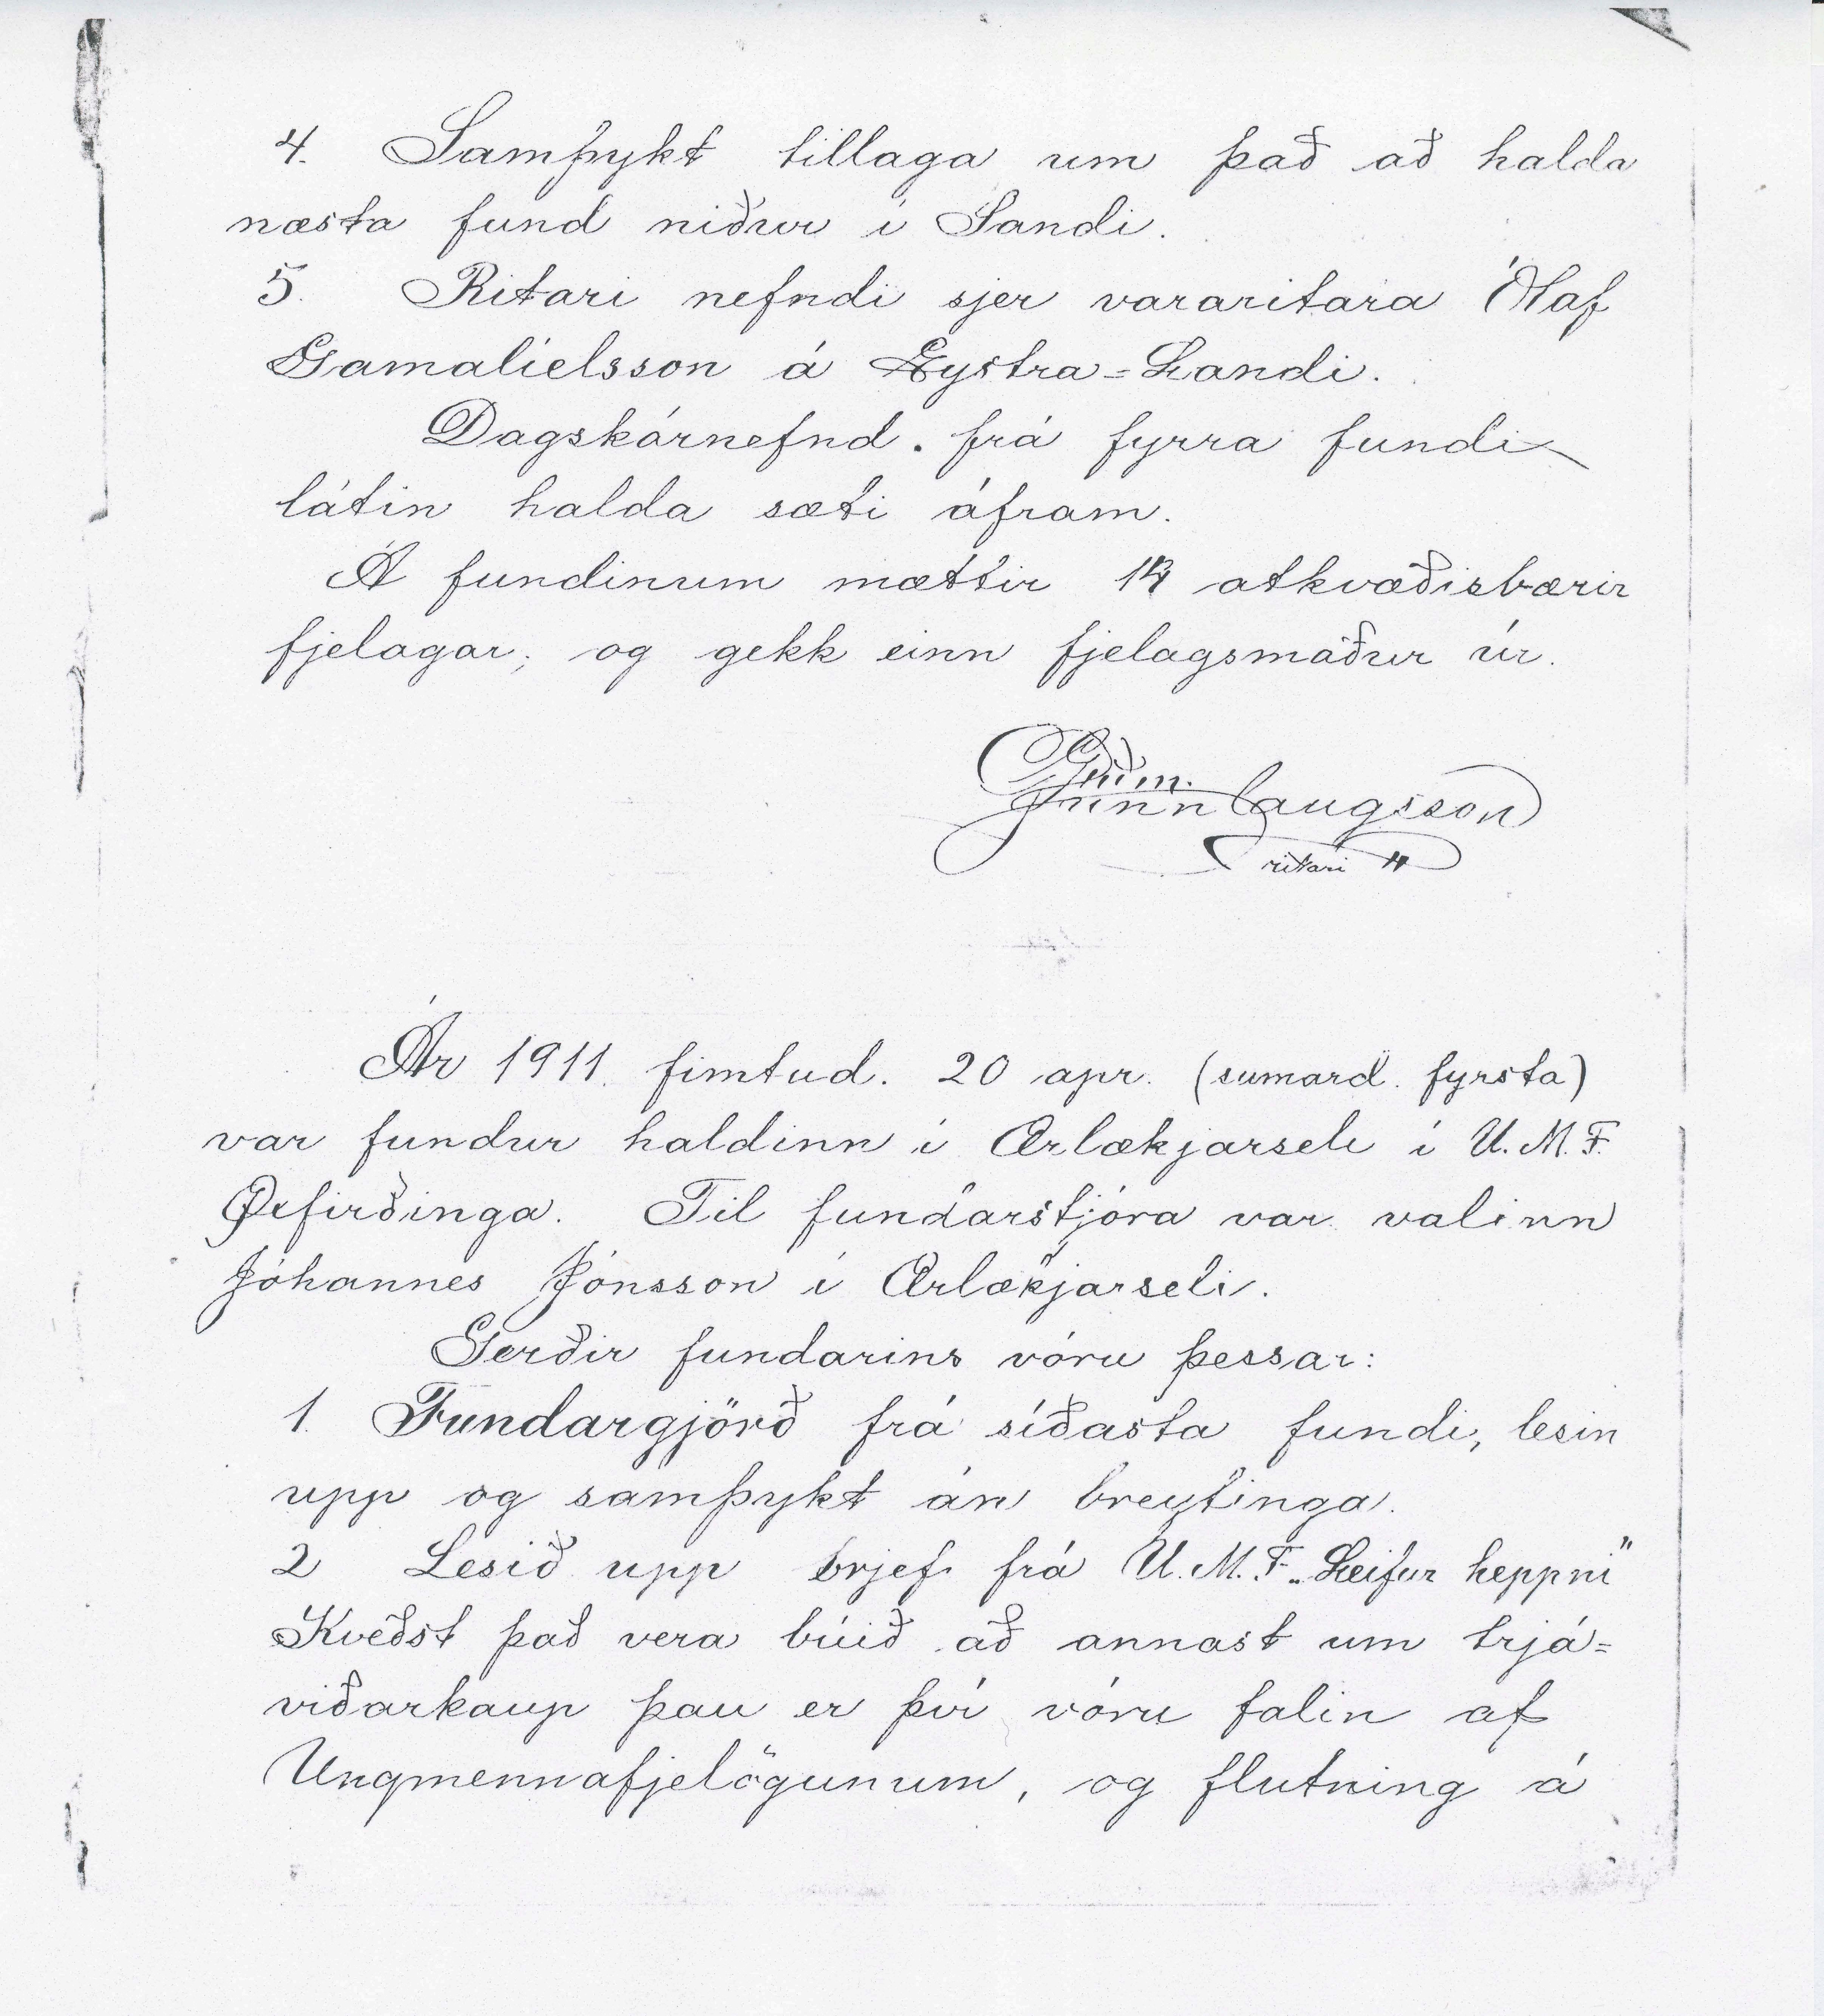 4. Samþykt tillaga um það að halda
næsta fund niður í Sandi.
5. Ritari nefndi sjer vararitara Ólaf
Gamalíelsson á Eystra=Landi.
Dagskárnefnd. frá fyrra fundi
látin halda sæti áfram.
Á fundinum mættir atkvæðisbærir
fjelagar; og gekk einn fjelagsmaður úr.
Guðm.
Gunnlaugsson
ritari
Ár 1911. fimtud. 20 apr. (sumard. fyrsta)
var fundur haldinn í Ærlækjarseli í U.M.F.
Öxfirðinga. Til fundarstjóra var valinn
Jóhannes Jónsson í Ærlækjarseli.
Gerðir fundarins vóru þessar:
1. Fundargjörð frá síðasta fundi, lesin
upp og samþykt án breytinga.
2 Lesið upp brjef frá U.M.F. „Leifur heppni"
Kveðst það vera búið að annast um trjá=
viðarkaup þau er því vóru falin af
Ungmennafjelögunum, og flutning á